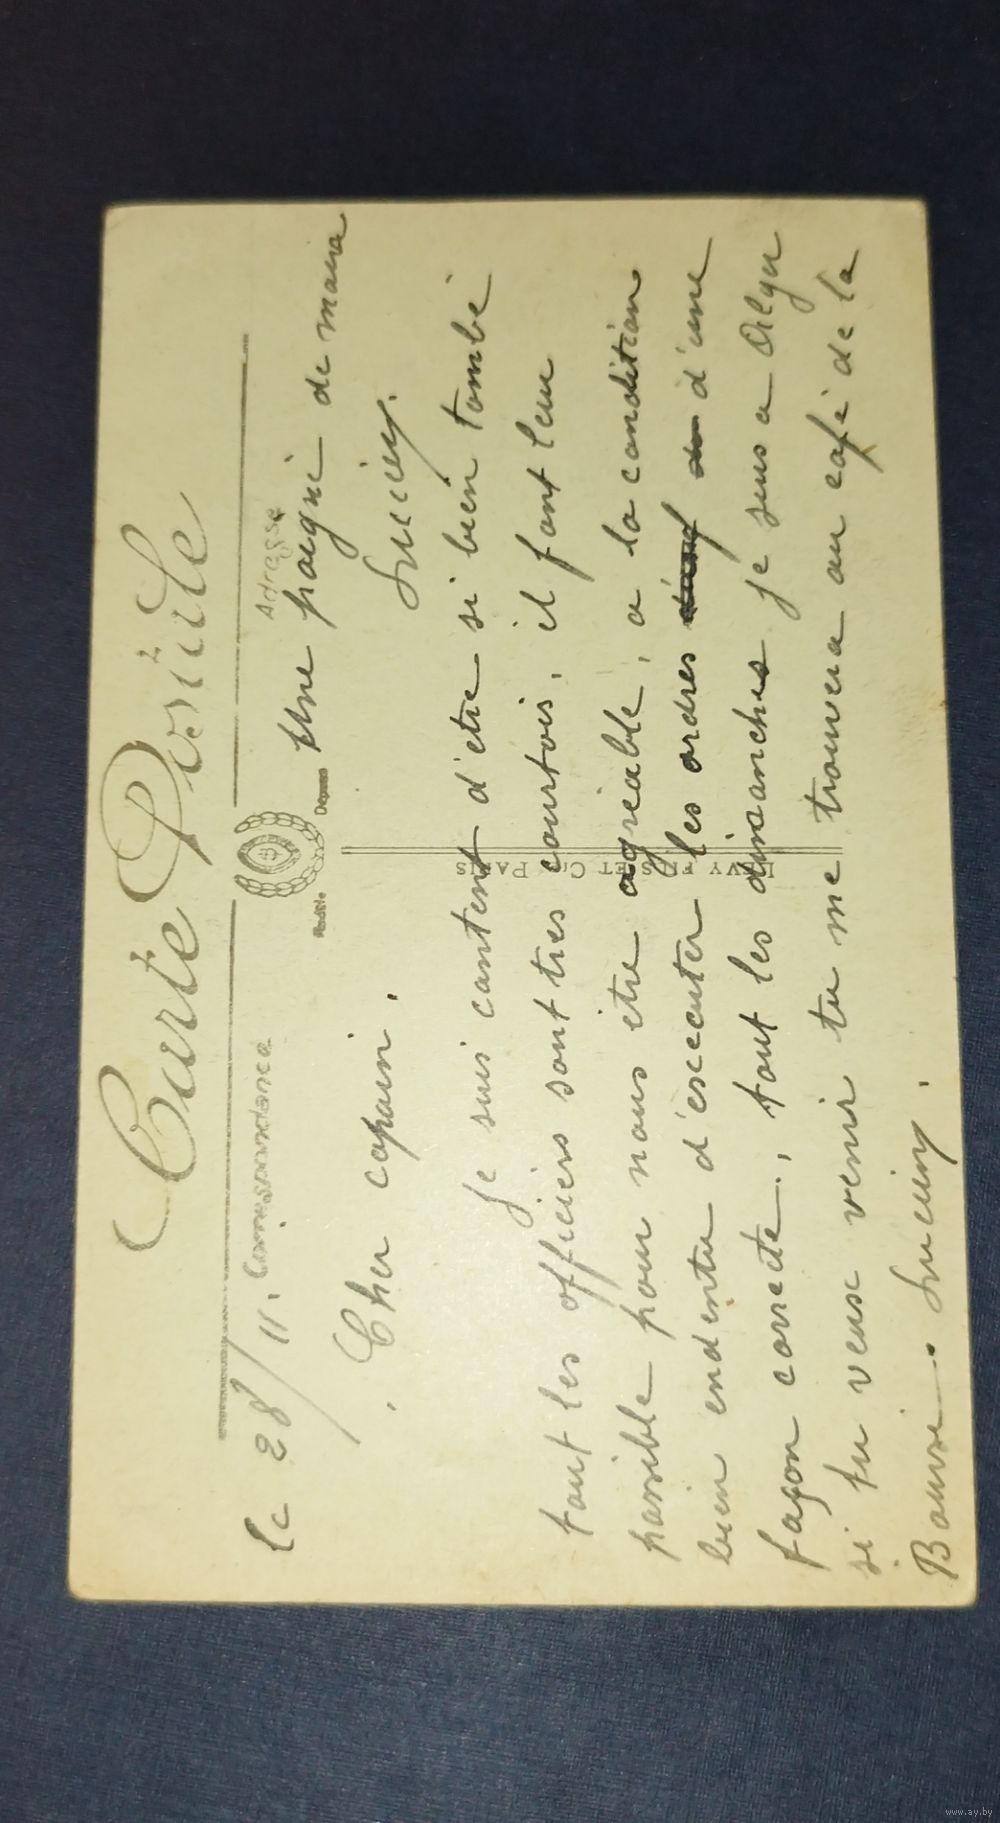 Carte Postale
Correspondance
Adresse
Modèle Déposé
LEVY FILS ET Cie PARIS
le 28/11.
Une poigné de main
Lucien.
Cher copain.
Je suis content d'etre si bien tombé
tout les officiers sont tres courtois, il font leur
possible pour nous être agréable, a la condition
bien endentu d'esecuter les ordres d'une
façon correcte, tout les dimanches je suis a Alger
si tu veux venir tu me trouvera au café de la
Bourse. Lucien.
www.ay.by